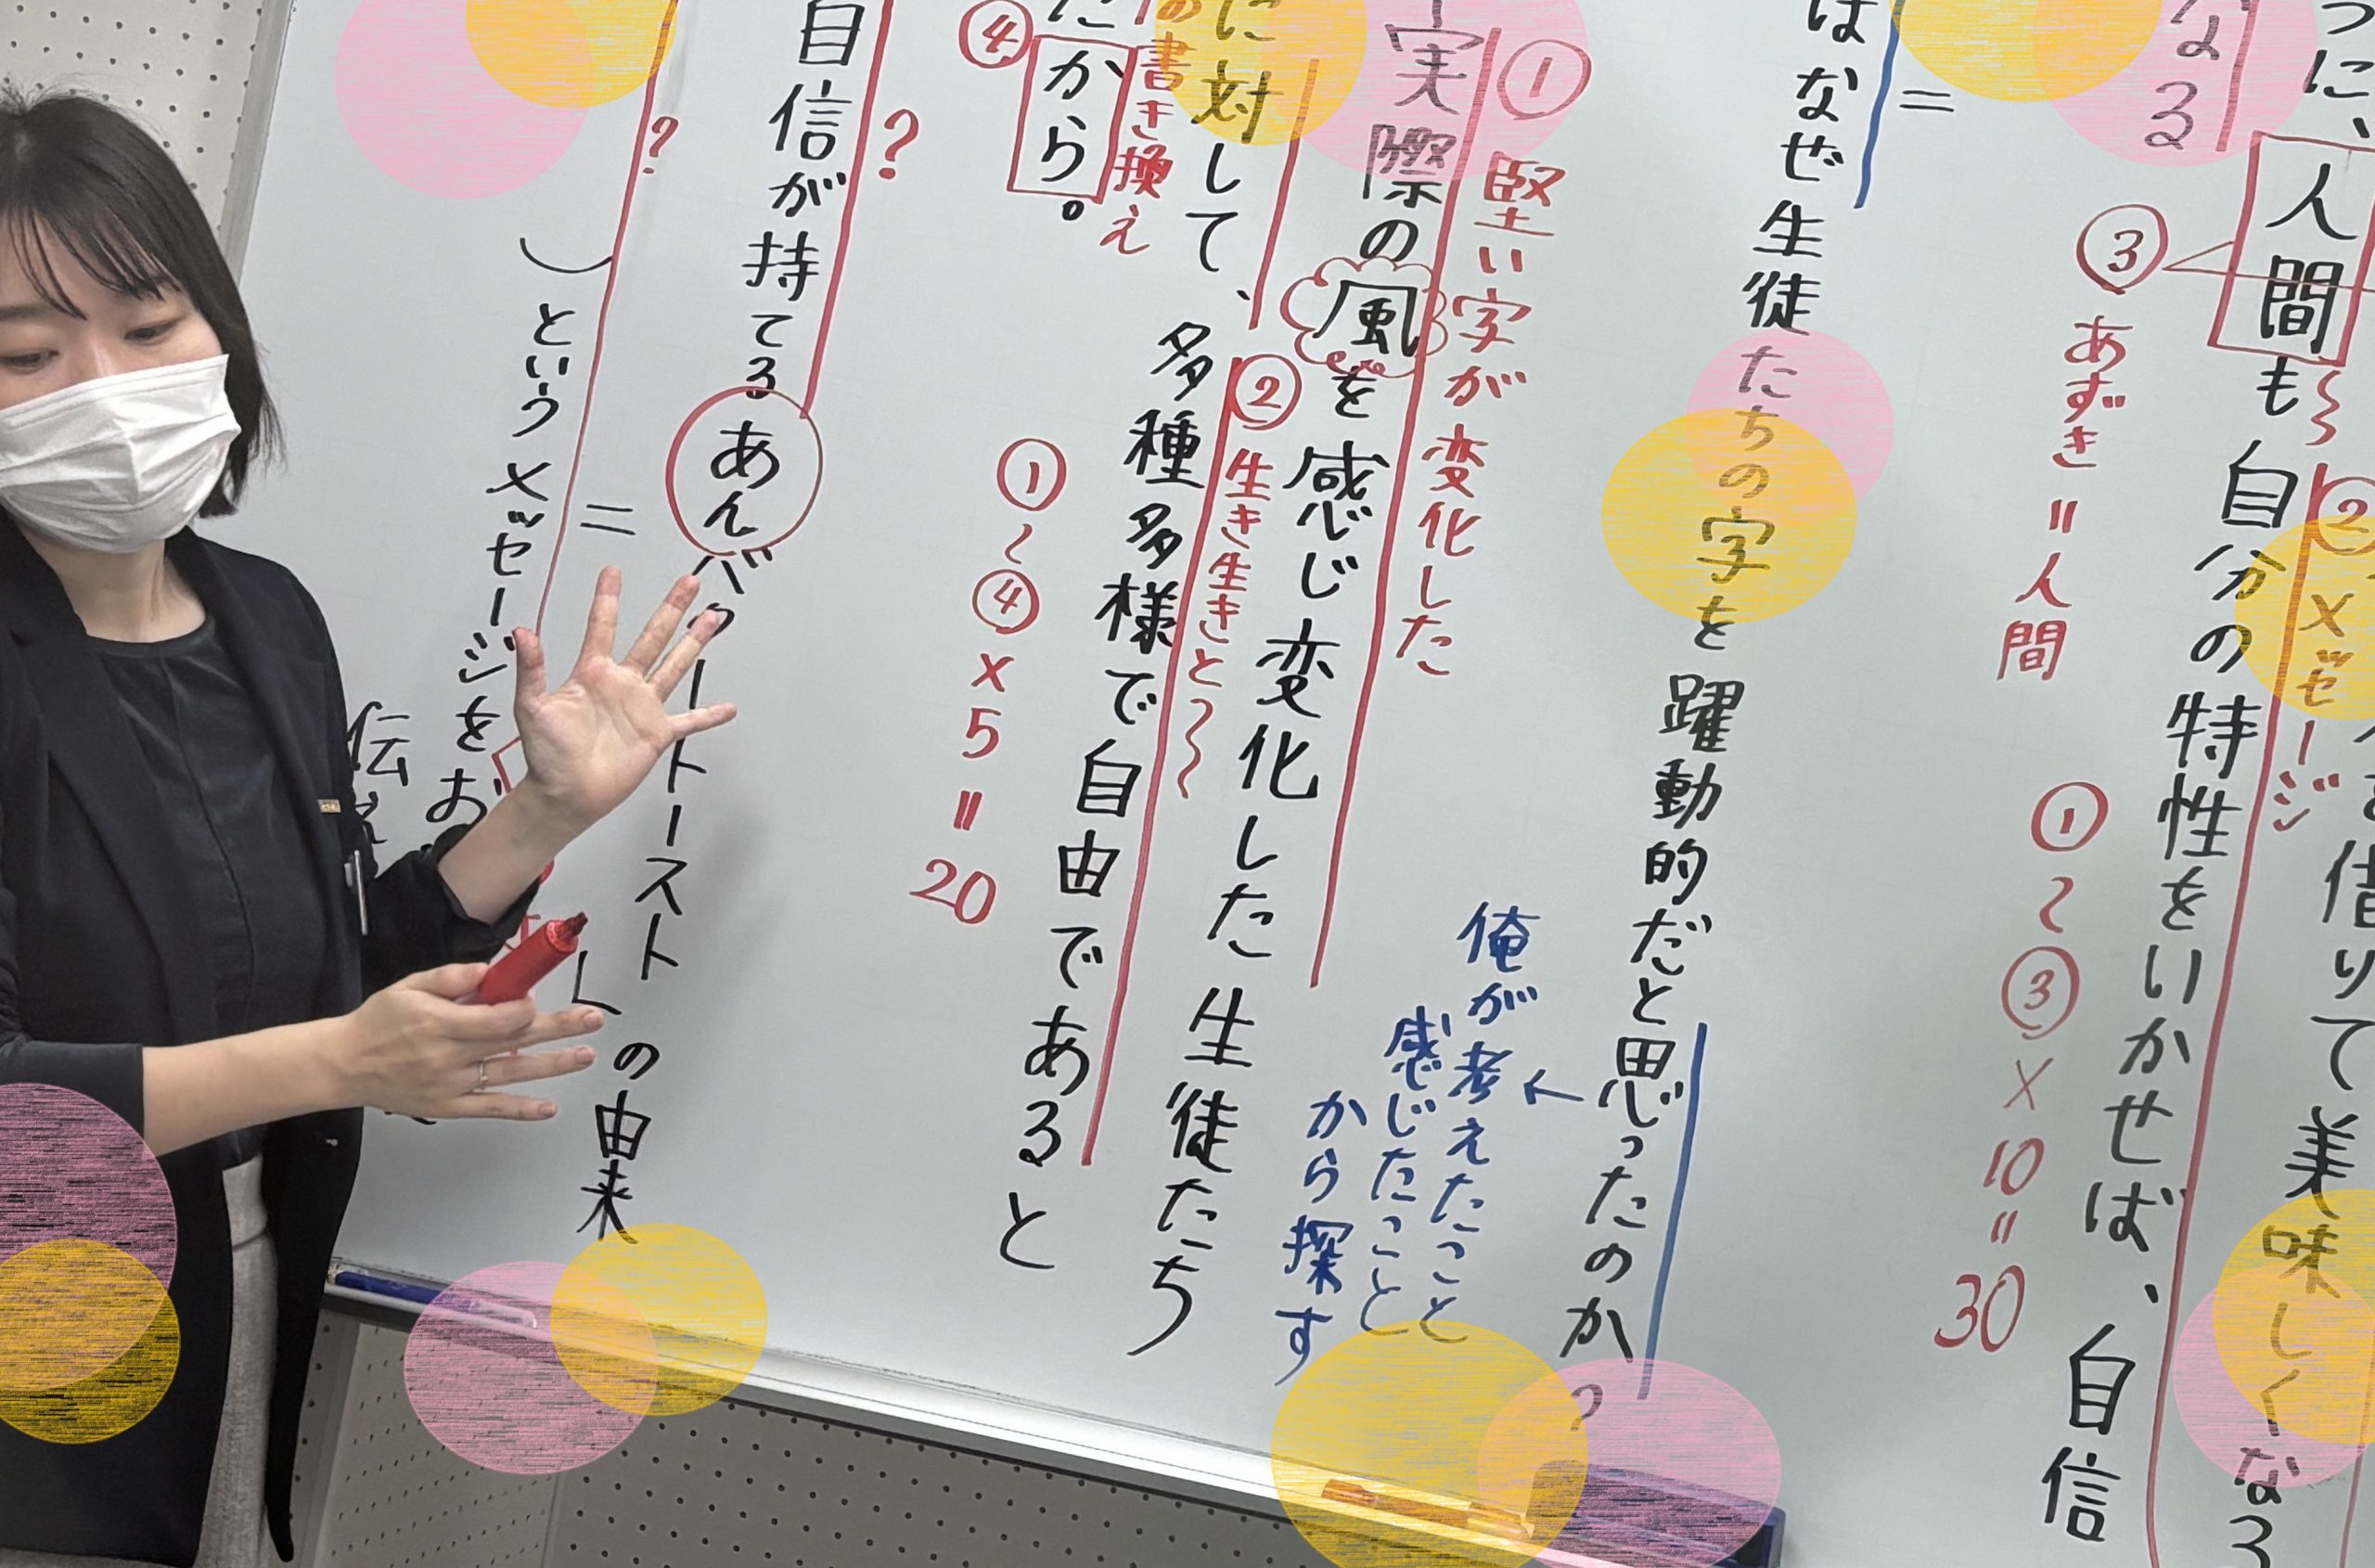 つに、人間も自分の特性をいかせば、自信
借りて美味しくなる
なる
②メッセージ
③あずき＝人間
①～③×10＝30
はなぜ生徒たちの字を躍動的だと思ったのか？
＝
俺が考えたこと
感じたこと
から探す
①堅い字が変化した
実際の風を感じ変化した生徒たち
に対して、多種多様で自由であると
②生き生きと～～
書き換え
④
たから。
①～④×5＝20
？
自信が持てるあんバタートースト」の由来
＝
？
）というメッセージをお
伝え